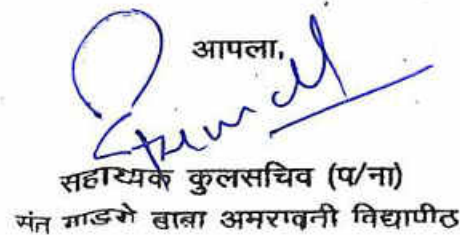 आपला,
सहाय्यक कुलसचिव (प/ना)
संत गाडगे बाबा अमरावती विद्यापीठ